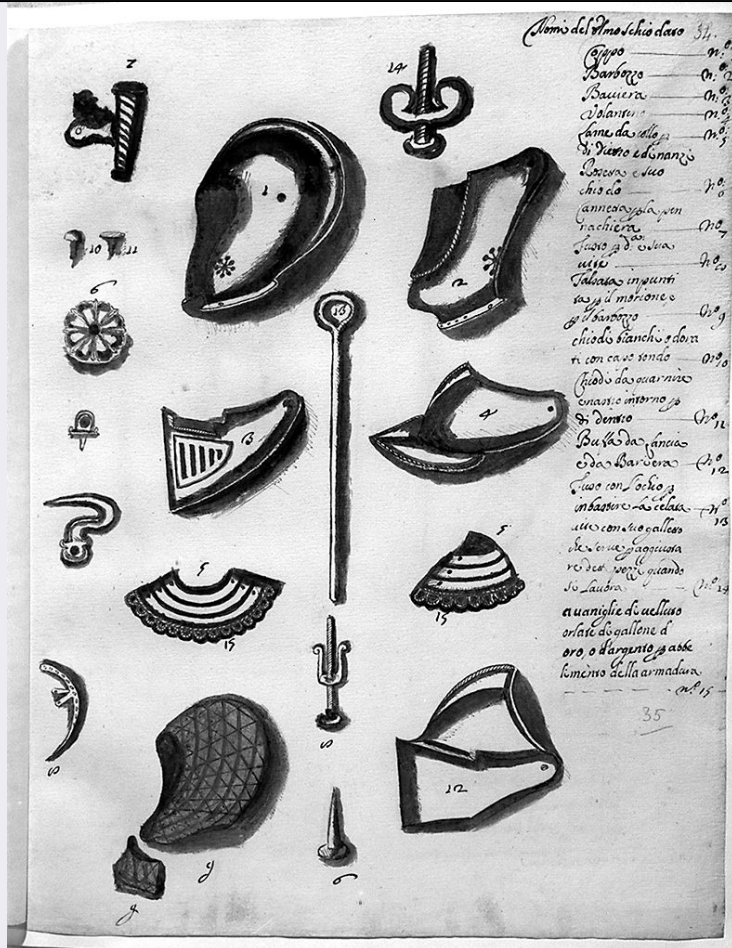 Nomi del Elmo schiodato 34.
Coppo n.o 1
Barbozzo n.o 2
Baviera n.o 3
Volantino n.o 4
Lame da collo p
di dietro e dinanzi n.o 5
Rosetta e suo
chiodo n.o 6
Cannetta p la pen
nachiera n.o 7
vitte n.o
Talvata inpunti
ta p il morione, e
p il barbozzo n.o 9
chiodi bianchi o dora
ti con capo tondo n.o 10
Chiodi da guarnire
e nastro intorno p
di dentro n.o 11
Buffa da lancia
e da Barriera n.o 12
Fuso con l'ochio p
imbastire la celata n.o 13
vite con suo galletto
che serve p aggiusta
re detti pezzi quando
si lavora n.o 14
a vaniglie di velluto
orlate di gallone d
oro, o d'argento p abbe
limento della armadura
n.o 15
35
7
14
1
2
10
11
6
13
3
4
5
15
5
15
8
8
12
9
6
9